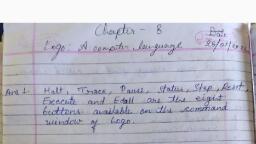 Chapter - 8
Logo: A computer language
Ans 1. Halt, Trace, Pause, Status, Step, Reset,
Execute and Edall are the eight
buttons available on the command
window of Logo.